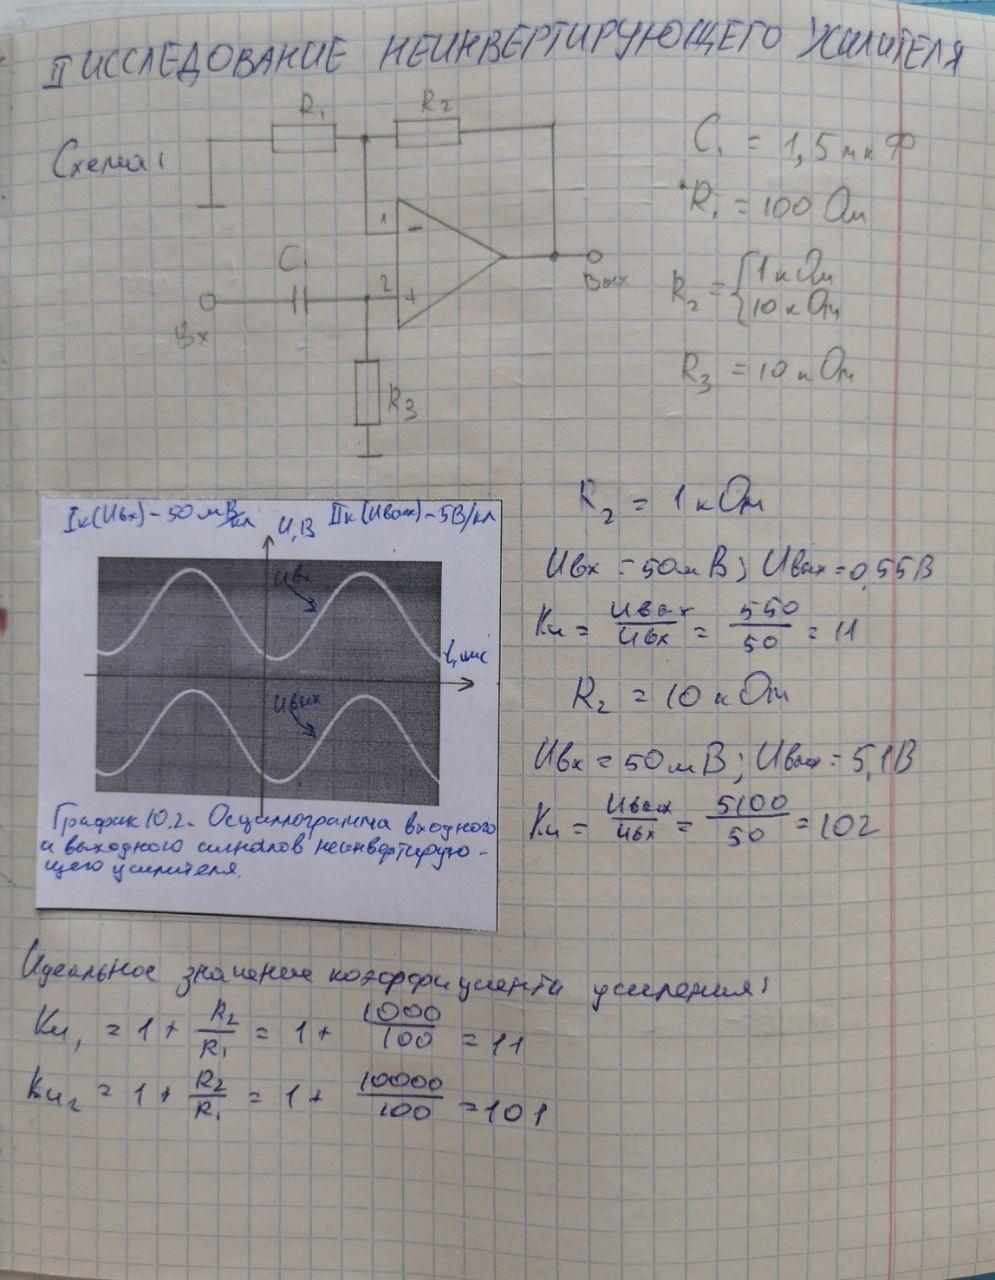 II ИССЛЕДОВАНИЕ НЕИНВЕРТИРУЮЩЕГО УСИЛИТЕЛЯ
Схема:
R₁
R₂
1
-
C₁
2
+
Вх
Вых
R₃
C₁ = 1,5 мкФ
R₁ = 100 Ом
R₂ = { 1 кОм
10 кОм
R₃ = 10 кОм
Iк(Uвх) - 50 мВ/кл
U, В
IIк(Uвых) - 5В/кл
Uвх
t, мс
Uвых
График 10.2 - Осциллограмма входного
и выходного сигналов неинвертирую -
щего усилителя.
R₂ = 1 кОм
Uвх = 50мВ; Uвых = 0,55В
Kи = Uвых/Uвх = 550/50 = 11
R₂ = 10 кОм
Uвх = 50мВ; Uвых = 5,1В
Kи = Uвых/Uвх = 5100/50 = 102
Идеальное значение коэффициента усиления:
Kи₁ = 1 + R₂/R₁ = 1 + 1000/100 = 11
Kи₂ = 1 + R₂/R₁ = 1 + 10000/100 = 101